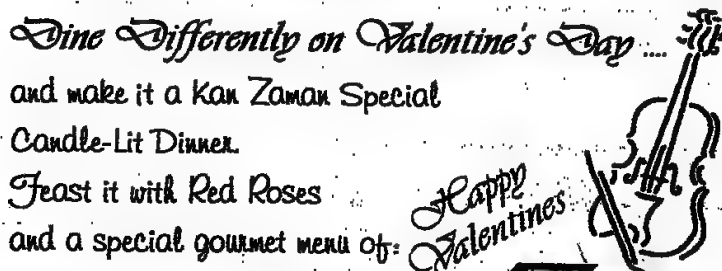 Dine Differently on Valentine's Day ....
and make it a Kan Zaman Special
Candle-Lit Dinner.
Feast it with Red Roses
and a special gourmet menu of:
Happy
Valentines